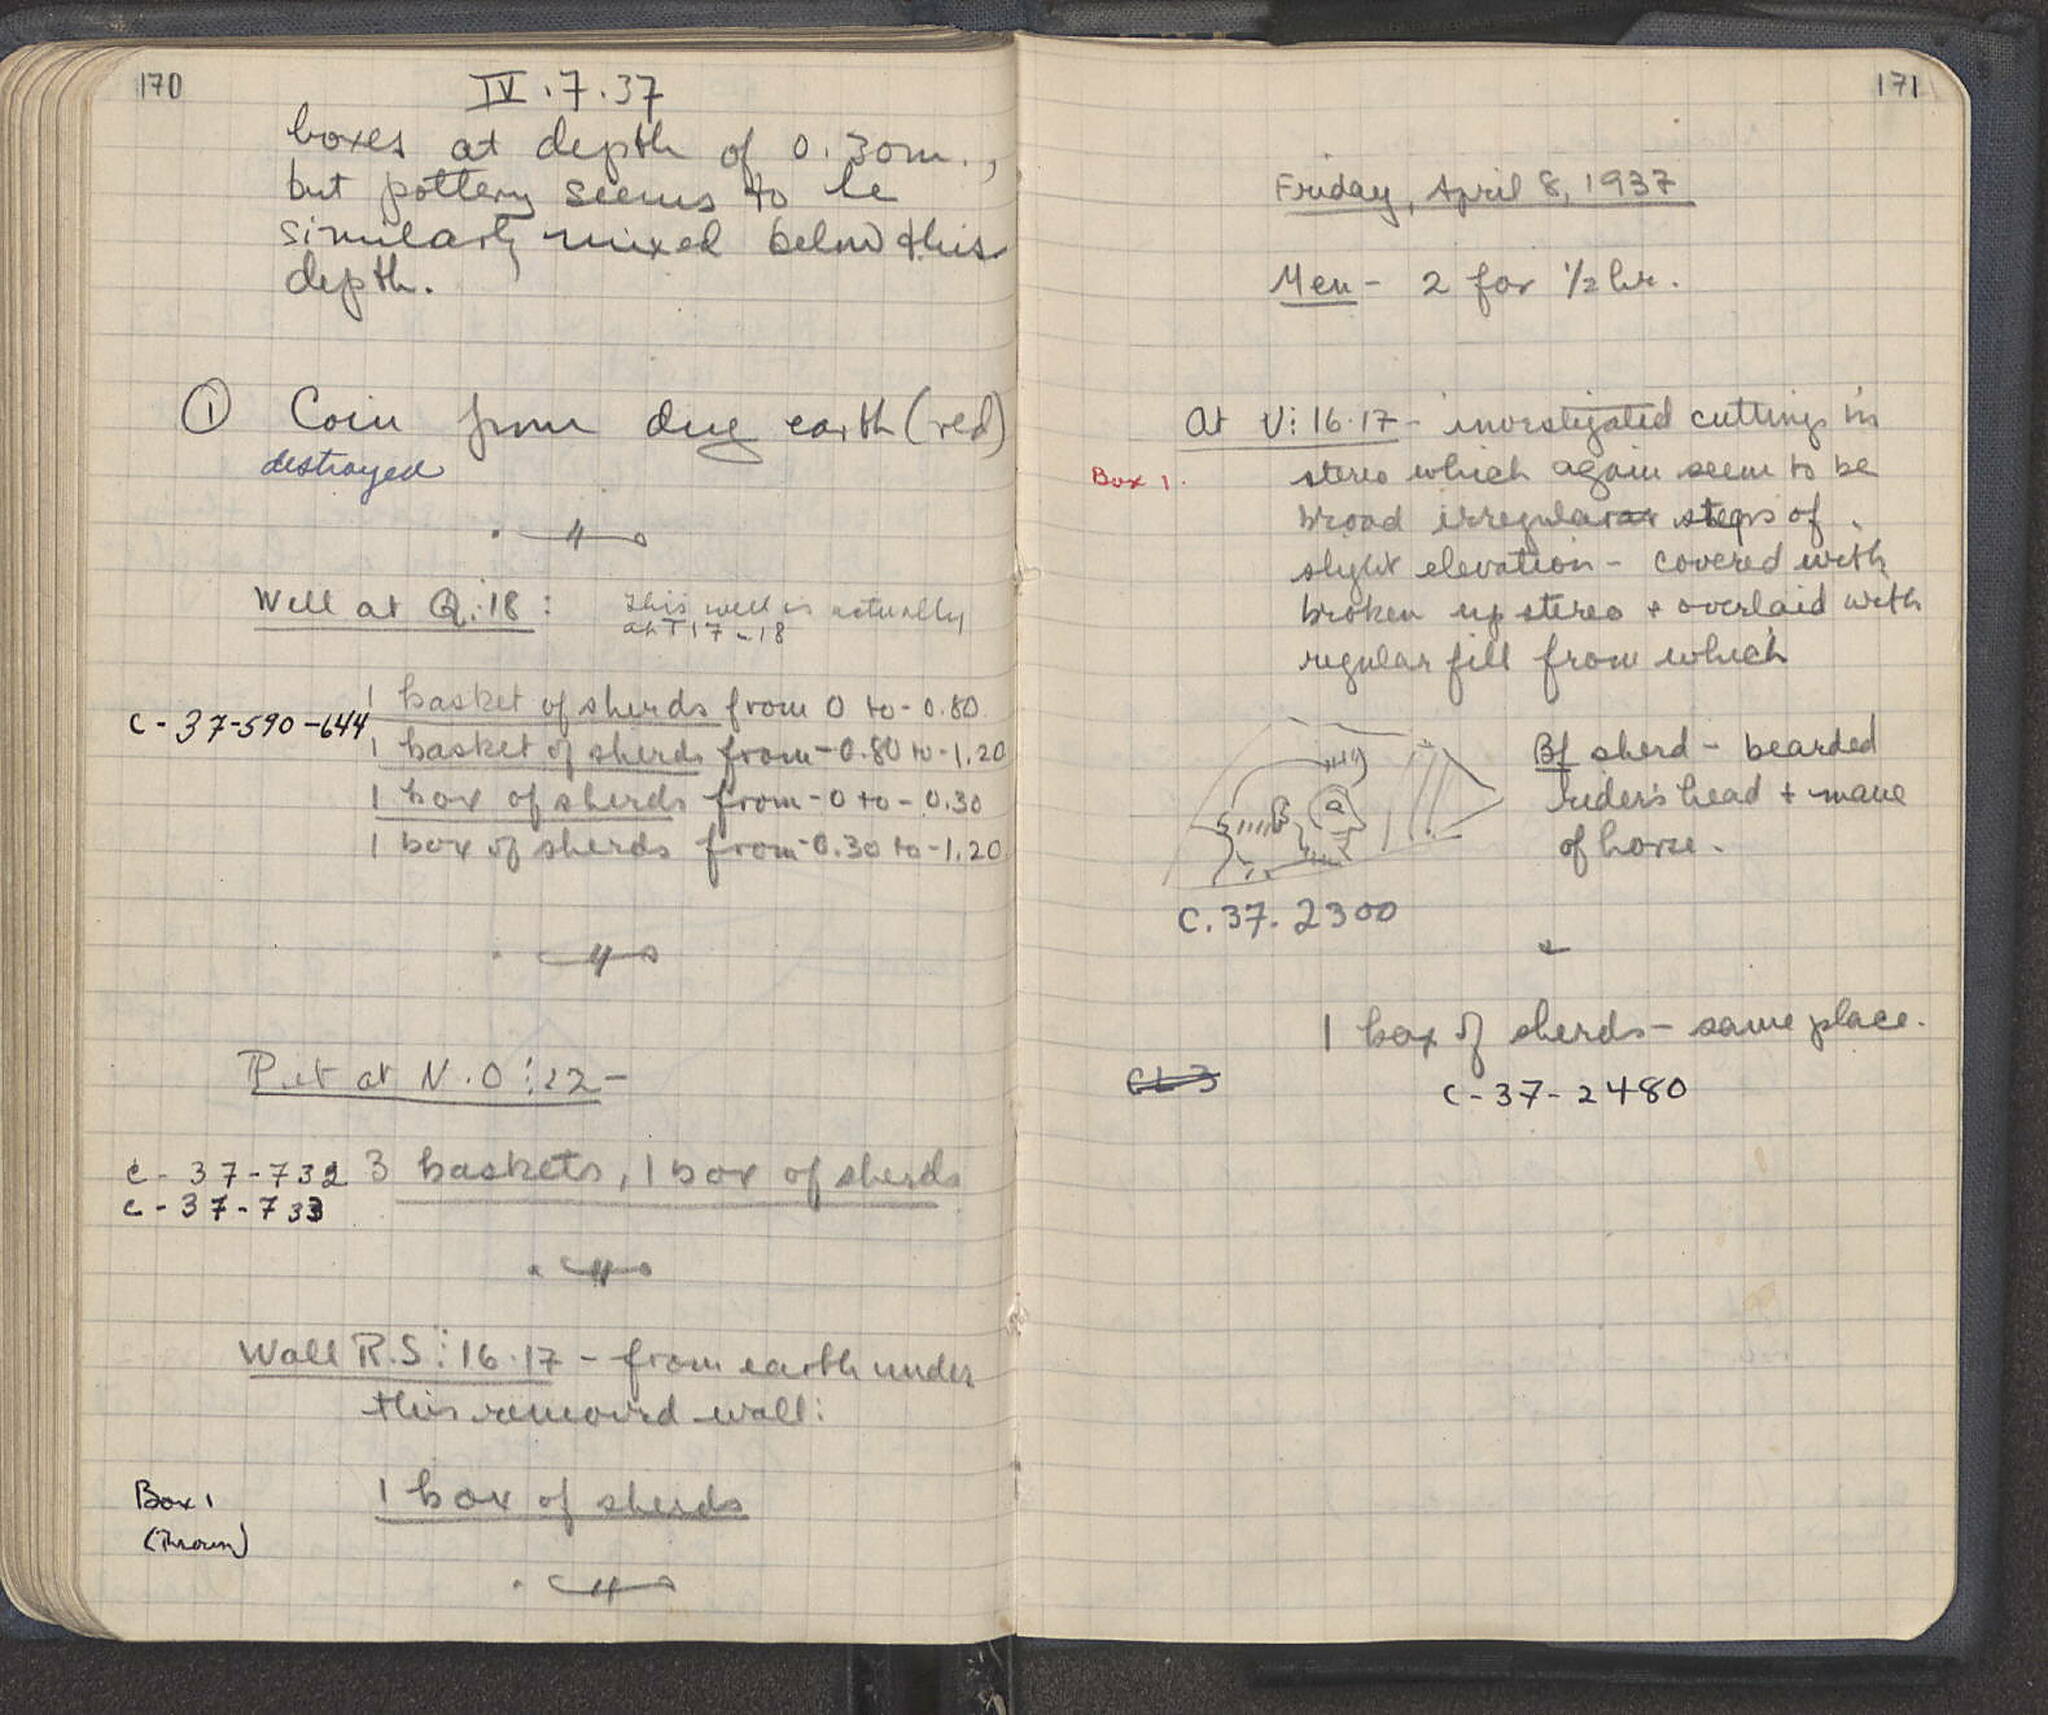 170
IV.7.37
boxes at depth of 0.30m.,
but pottery seems to be
similarly mixed below this
depth.
① Coin from dug earth (red)
destroyed
Well at Q:18:
This well is actually
at T 17-18
1 basket of sherds from 0 to -0.80
C-37-590-644
1 basket of sherds from -0.80 to -1.20
1 box of sherds from -0 to -0.30
1 box of sherds from -0.30 to -1.20
Pit at N.O:22-
C-37-732 3 baskets, 1 box of sherds
C-37-733
Wall R.S:16.17 - from earth under
this removed wall:
Box 1 1 box of sherds
(Thrown)
171
Friday, April 8, 1937
Men - 2 for 1/2 hr.
At V:16.17 - investigated cuttings in
Box 1. stereo which again seem to be
broad irregular steps of
slight elevation - covered with
broken up stereo + overlaid with
regular fill from which
Bf sherd - bearded
rider's head + mane
of horse.
C.37.2300
1 box of sherds - same place.
C-37-2480